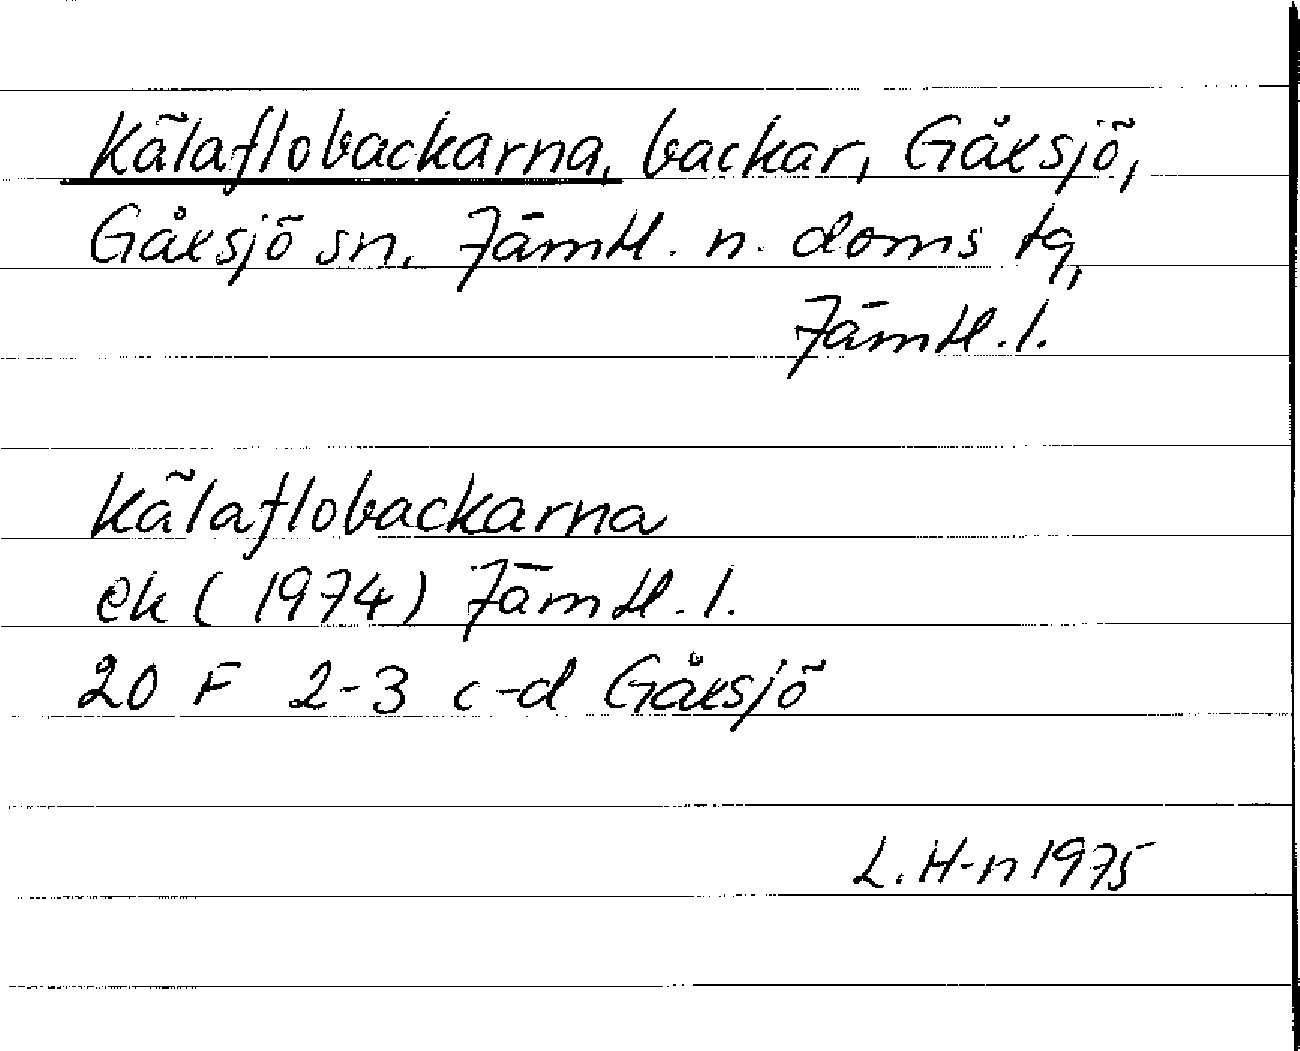 Kälaflobackarna, backar, Gåxsjö,
Gåxsjö sn, Jämtl. n. doms tg,
Jämtl. l.
Kälaflobackarna
ek (1974) Jämtl. l.
20 F 2-3 c-d Gåxsjö
L. H-n 1975